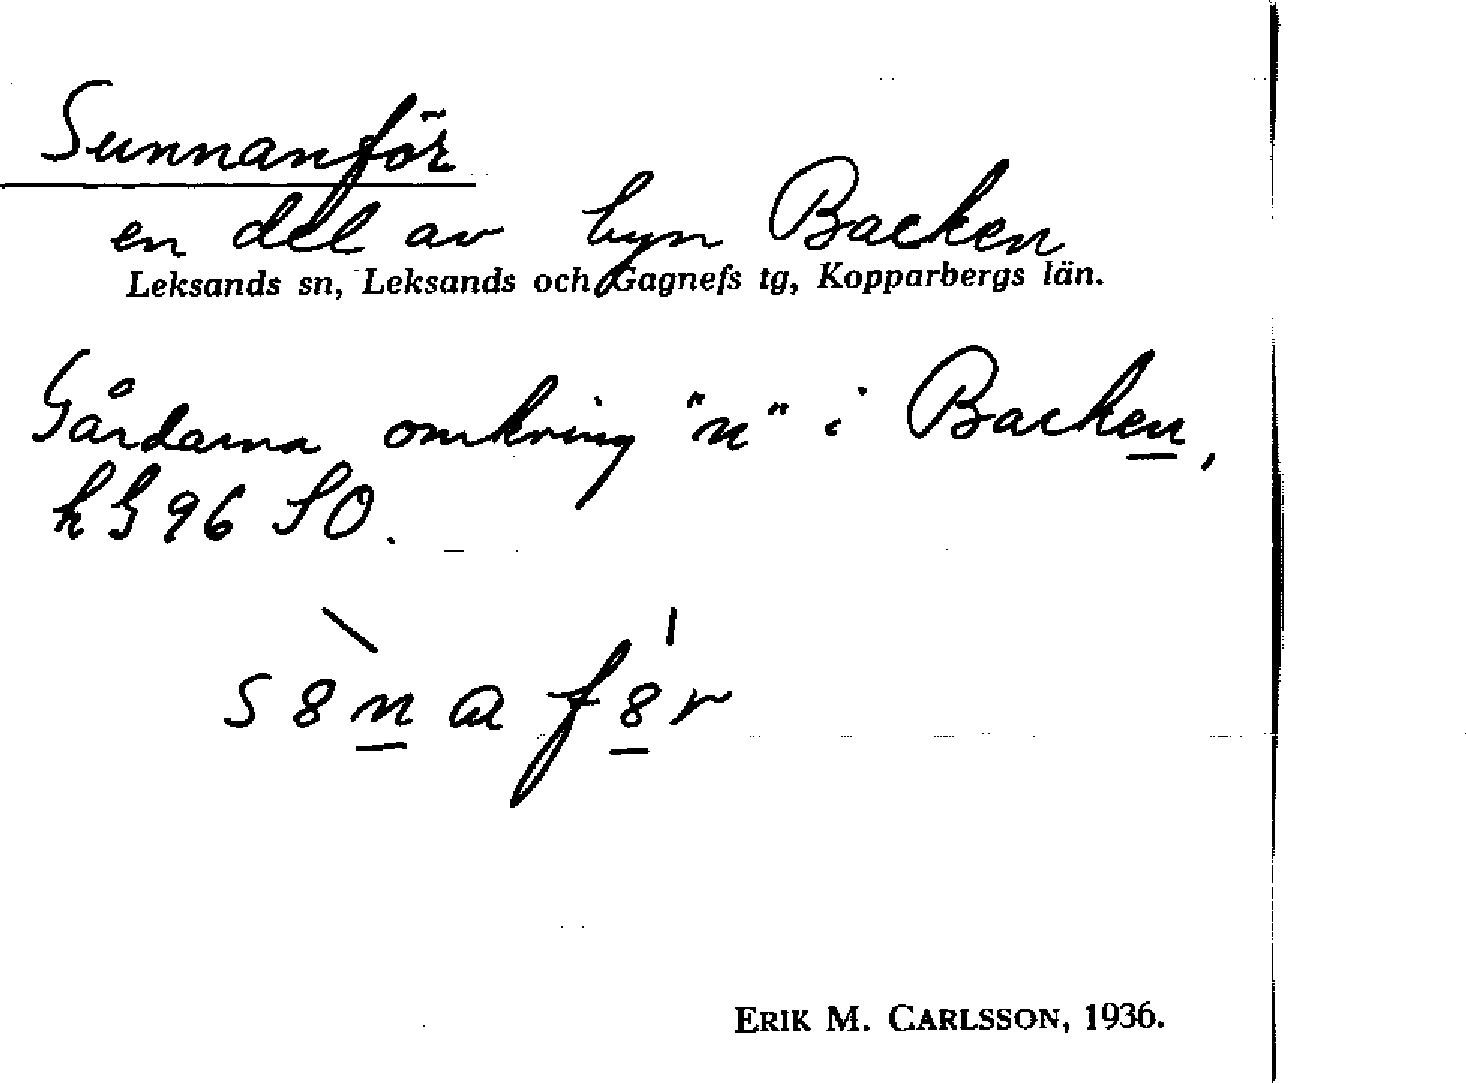 Sunnanför
en del av byn Backen
Leksands sn, Leksands och Gagnefs tg, Kopparbergs län.
Gårdarna omkring "n" i Backen,
k G 96 SO.
s 8 n a f 8 r
ERIK M. CARLSSON, 1936.